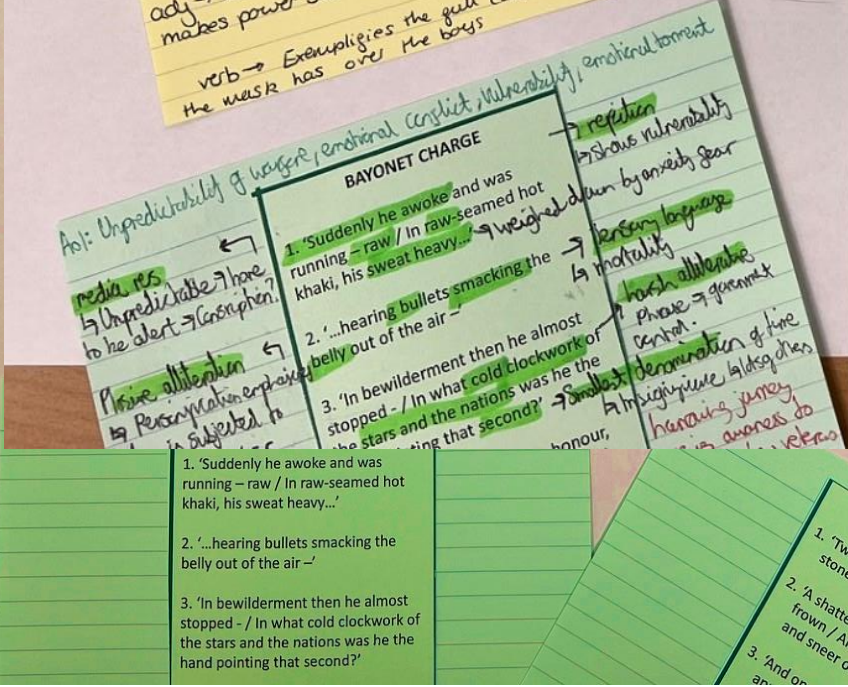 adj
makes power
verb → Exemplifies the
the mask has over the boys
Ao1: Unpredictability of warfare, emotional conflict, vulnerability, emotional torment
BAYONET CHARGE
1. 'Suddenly he awoke and was
running – raw / In raw-seamed hot
khaki, his sweat heavy...'
2. '...hearing bullets smacking the
belly out of the air –'
3. 'In bewilderment then he almost
stopped - / In what cold clockwork of
the stars and the nations was he the
ting that second?'
honour,
media res
↳ Unpredictable → have
to be alert → Conscription?
Plosive alliteration
↳ Personification emphasises
is subjected to
→ repetition
↳ shows vulnerability
→ weighed down by anxiety fear
→ sensory language
↳ mortality
harsh alliterative
Phrase → government
control.
→ Smallest denomination of time
↳ Insignificance
1. 'Suddenly he awoke and was
running – raw / In raw-seamed hot
khaki, his sweat heavy...'
2. '...hearing bullets smacking the
belly out of the air –'
3. 'In bewilderment then he almost
stopped - / In what cold clockwork of
the stars and the nations was he the
hand pointing that second?'
1. 'Tw
stone
2. 'A shatte
frown / A
and sneer o
3. 'And on